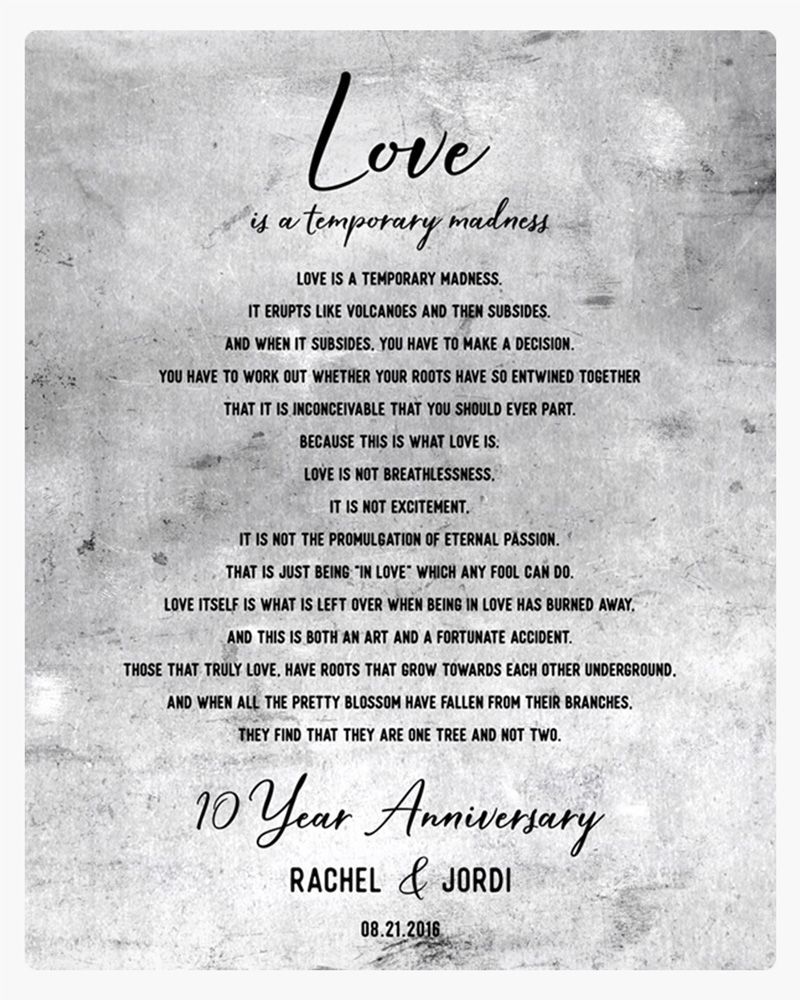 Love
is a temporary madness
LOVE IS A TEMPORARY MADNESS.
IT ERUPTS LIKE VOLCANOES AND THEN SUBSIDES.
AND WHEN IT SUBSIDES, YOU HAVE TO MAKE A DECISION.
YOU HAVE TO WORK OUT WHETHER YOUR ROOTS HAVE SO ENTWINED TOGETHER
THAT IT IS INCONCEIVABLE THAT YOU SHOULD EVER PART.
BECAUSE THIS IS WHAT LOVE IS.
LOVE IS NOT BREATHLESSNESS,
IT IS NOT EXCITEMENT,
IT IS NOT THE PROMULGATION OF ETERNAL PASSION.
THAT IS JUST BEING "IN LOVE" WHICH ANY FOOL CAN DO.
LOVE ITSELF IS WHAT IS LEFT OVER WHEN BEING IN LOVE HAS BURNED AWAY,
AND THIS IS BOTH AN ART AND A FORTUNATE ACCIDENT.
THOSE THAT TRULY LOVE, HAVE ROOTS THAT GROW TOWARDS EACH OTHER UNDERGROUND,
AND WHEN ALL THE PRETTY BLOSSOM HAVE FALLEN FROM THEIR BRANCHES,
THEY FIND THAT THEY ARE ONE TREE AND NOT TWO.
10 Year Anniversary
RACHEL & JORDI
08.21.2016